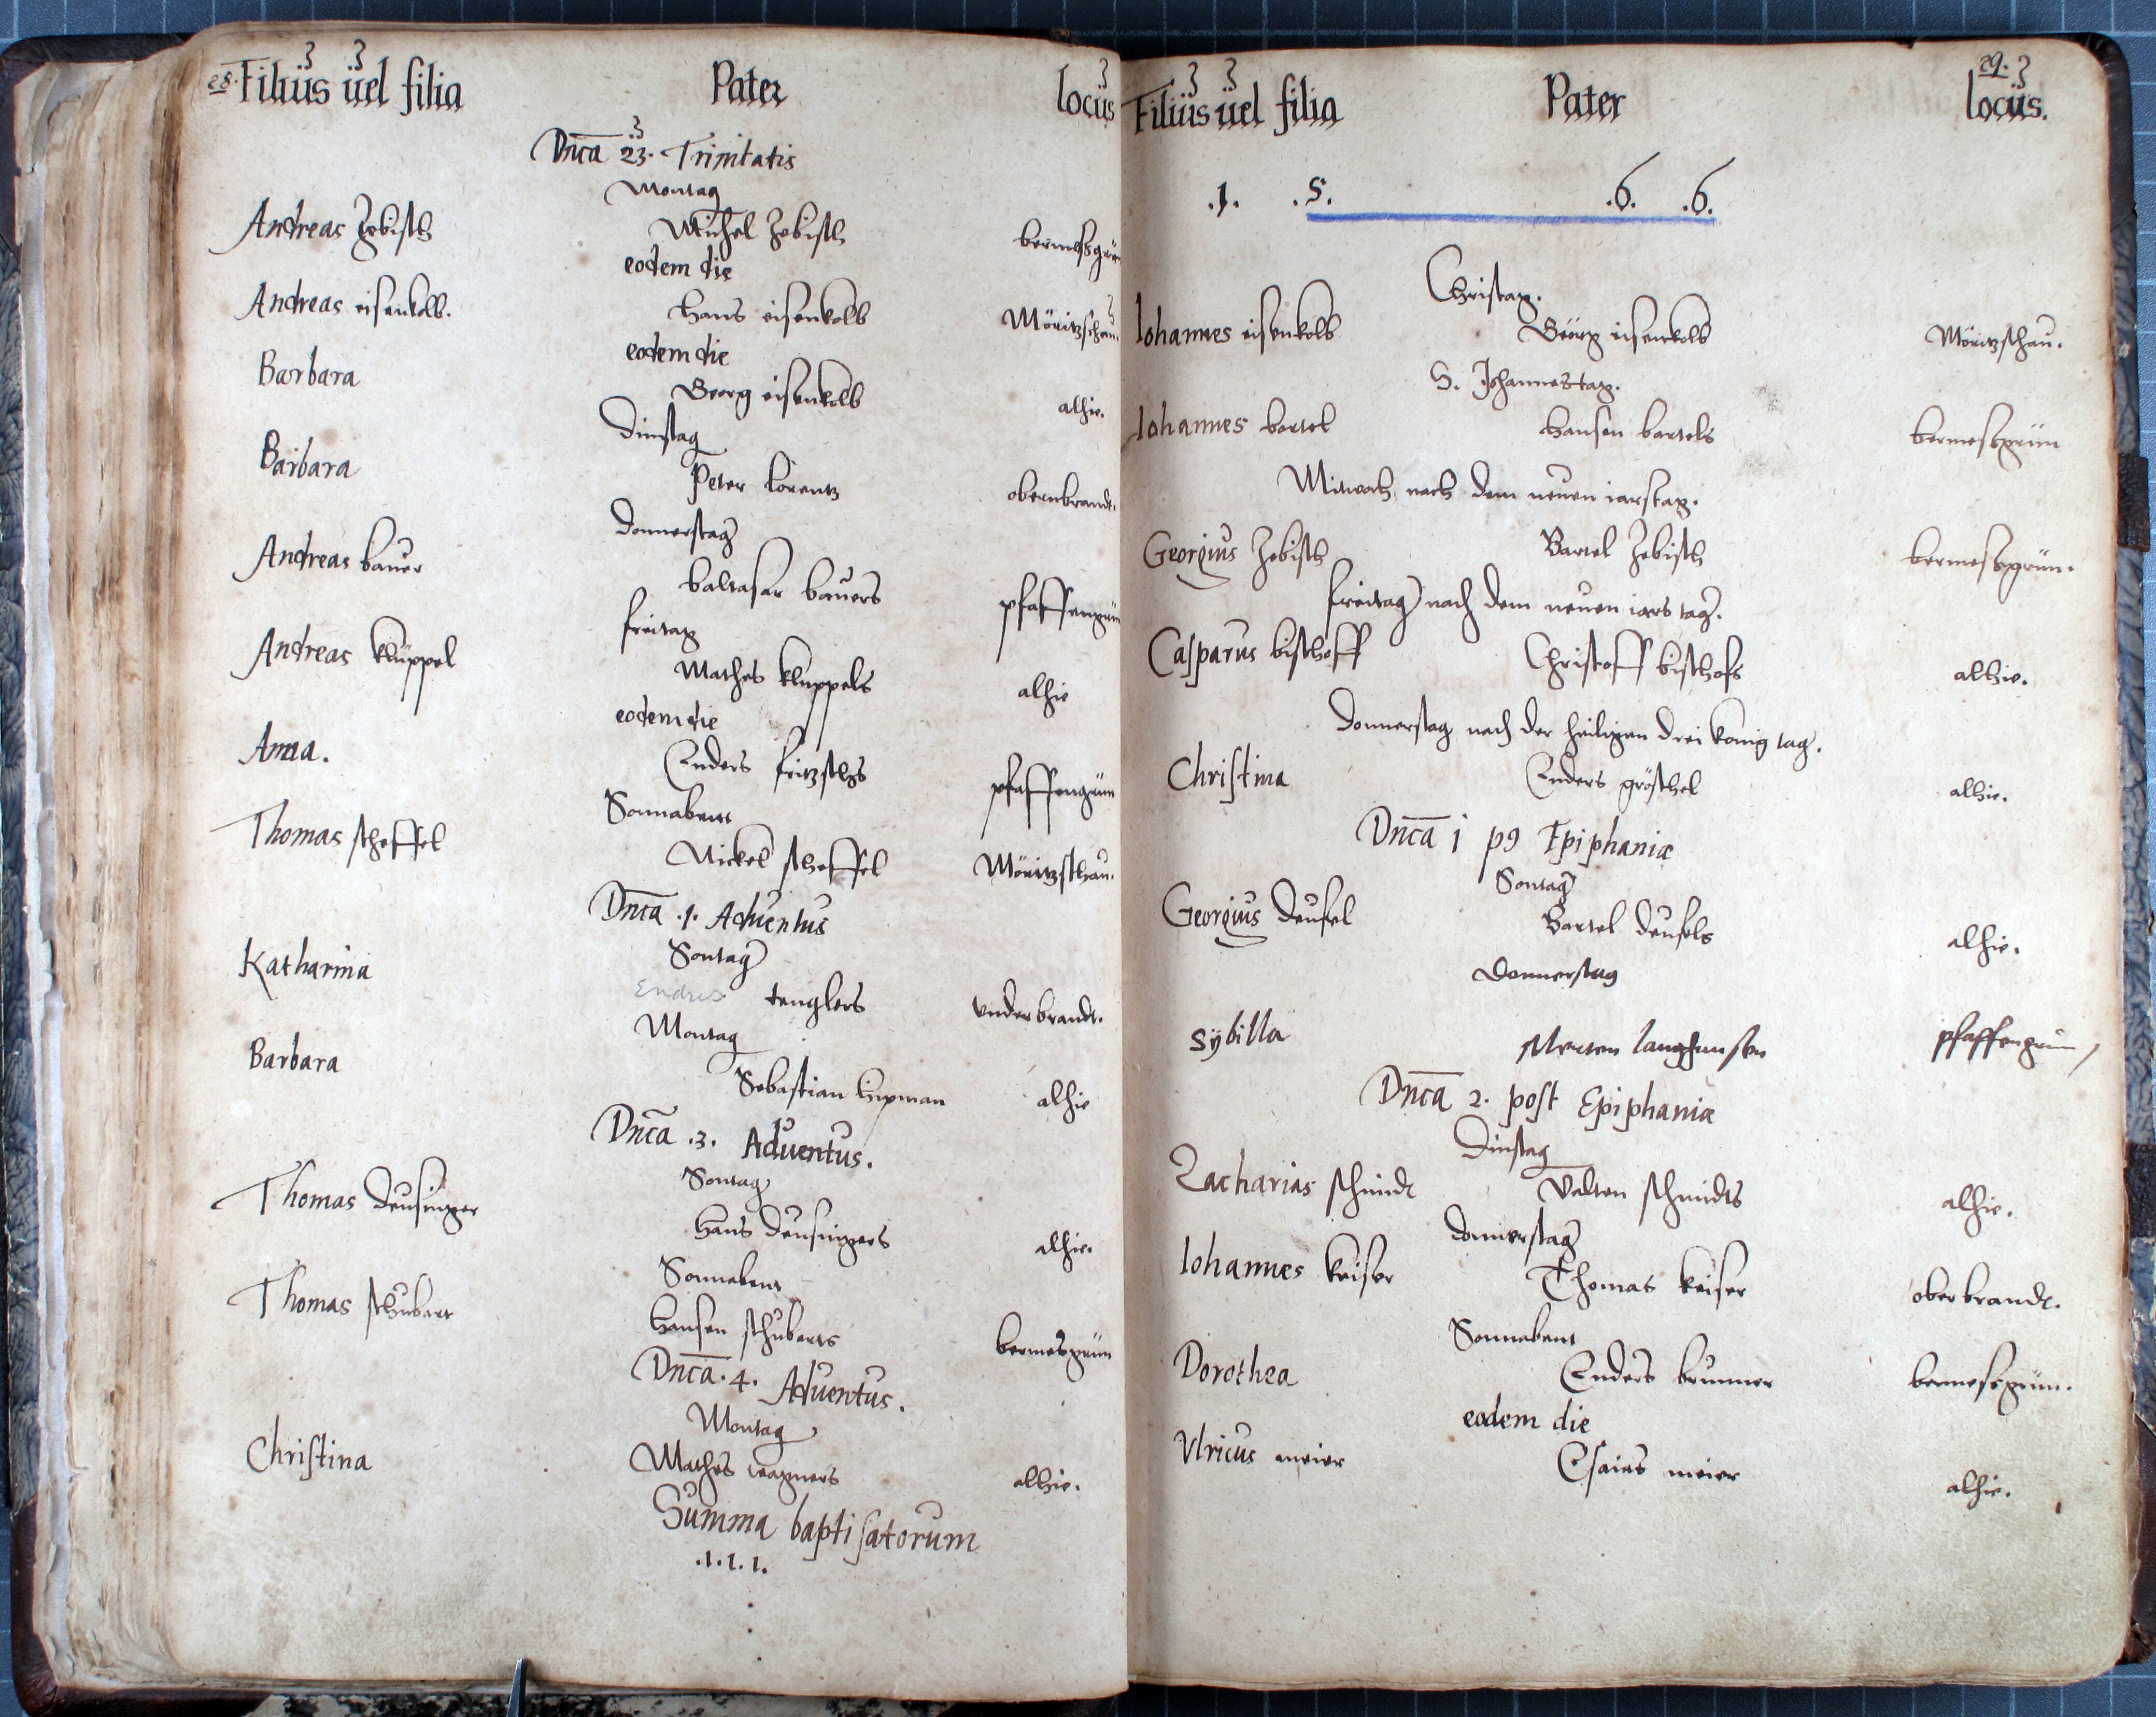 28. Filius uel filia Pater locus
Dnca 23. Trinitatis
Montag
Andreas Zebisch Michel Zebisch bermeßgrün
eodem die
Andreas eisenkolb. Hans eisenkolb Möritzschau.
eodem die
Barbara Georg eisenkolb alhie.
Dinstag
Barbara Peter Lorentz obernbrandt.
Donnerstag
Andreas bauer baltasar bauers pfaffengrün
freitag
Andreas klüppel Mathes klüppels alhie
eodem die
Anna. Enders fritzschs pfaffengrün
Sonnabent
Thomas scheffel Nickel scheffel Möritzschau.
Dnca .1. Aduentus
Sontag
Katharina Endres tenglers vnderbrandt.
Montag
Barbara Sebastian lipman alhie
Dnca .3. Aduentus.
Sontag
Thomas Deusinger Hans Deusingers alhie.
Sonnabent
Thomas schubert Hansen schuberts bermesgrün
Dnca .4. Aduentus.
Montag
Christina Mathes wagners alhie.
Summa baptisatorum
.1.1.1.
29.
Filius uel filia Pater locus.
.1. .5. .6. .6.
Christag.
Iohannes eisenkolb Georg eisenkolb Möritzschau.
S. Johannestag.
Iohannes bartel Hansen bartels bermeßgrün
Mitwoch nach dem neuen iarstag.
Georgius Zebisch Bartel Zebisch bermeßgrün.
freitag nach dem neuen iars tag.
Casparus bischoff Christoff bischofs alhie.
Donnerstag nach der heiligen drei könig tag.
Christina Enders gröschel alhie.
Dnca 1 p9 Epiphaniæ
Sontag
Georgius Deusel Bartel Deusels alhie.
Donnerstag
Sÿbilla Merten langhansen pfaffengrun
Dnca 2. post Epiphaniæ
Dinstag
Zacharias schmidt Valten schmidts alhie.
donnerstag
Iohannes keiser Thomas keiser oberbrandt.
Sonnabent
Dorothea Enders brunner bermeßgrün.
eodem die
Vlricus meier Esaias meier alhie.